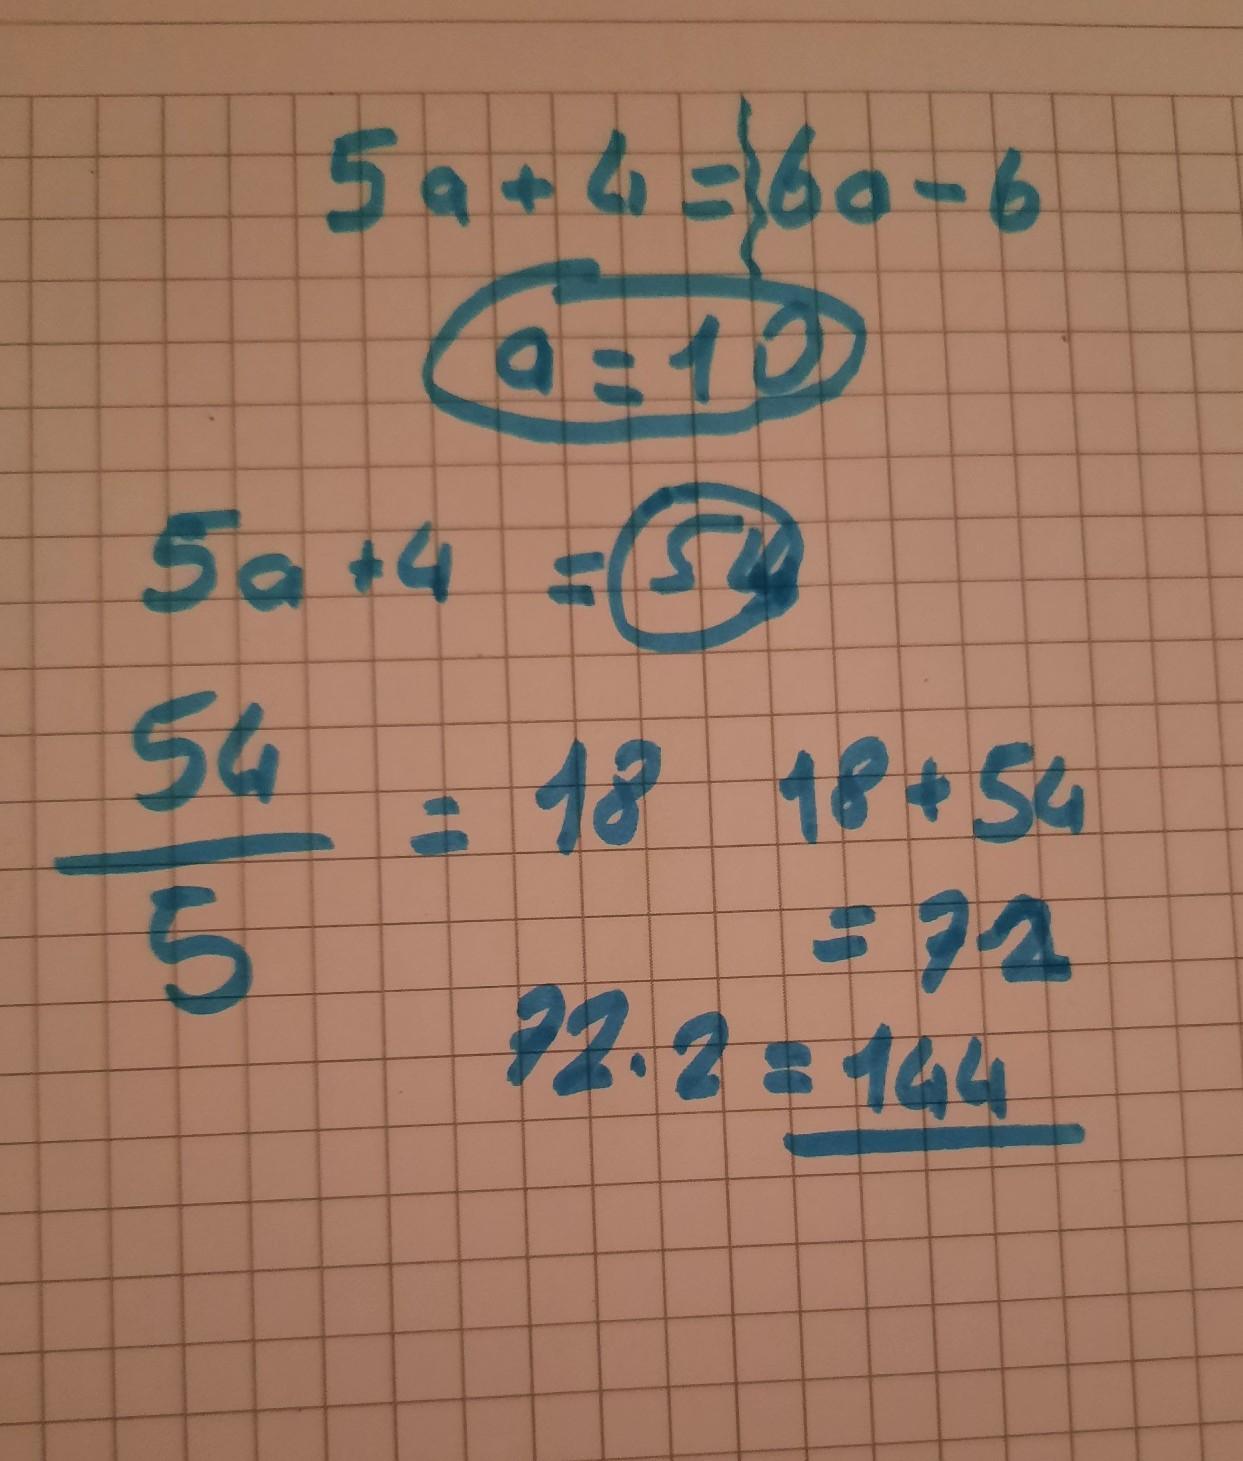 5a+4=6a-6
a=10
5a+4 =54
54
5
= 18
18+54
=72
72.2=144